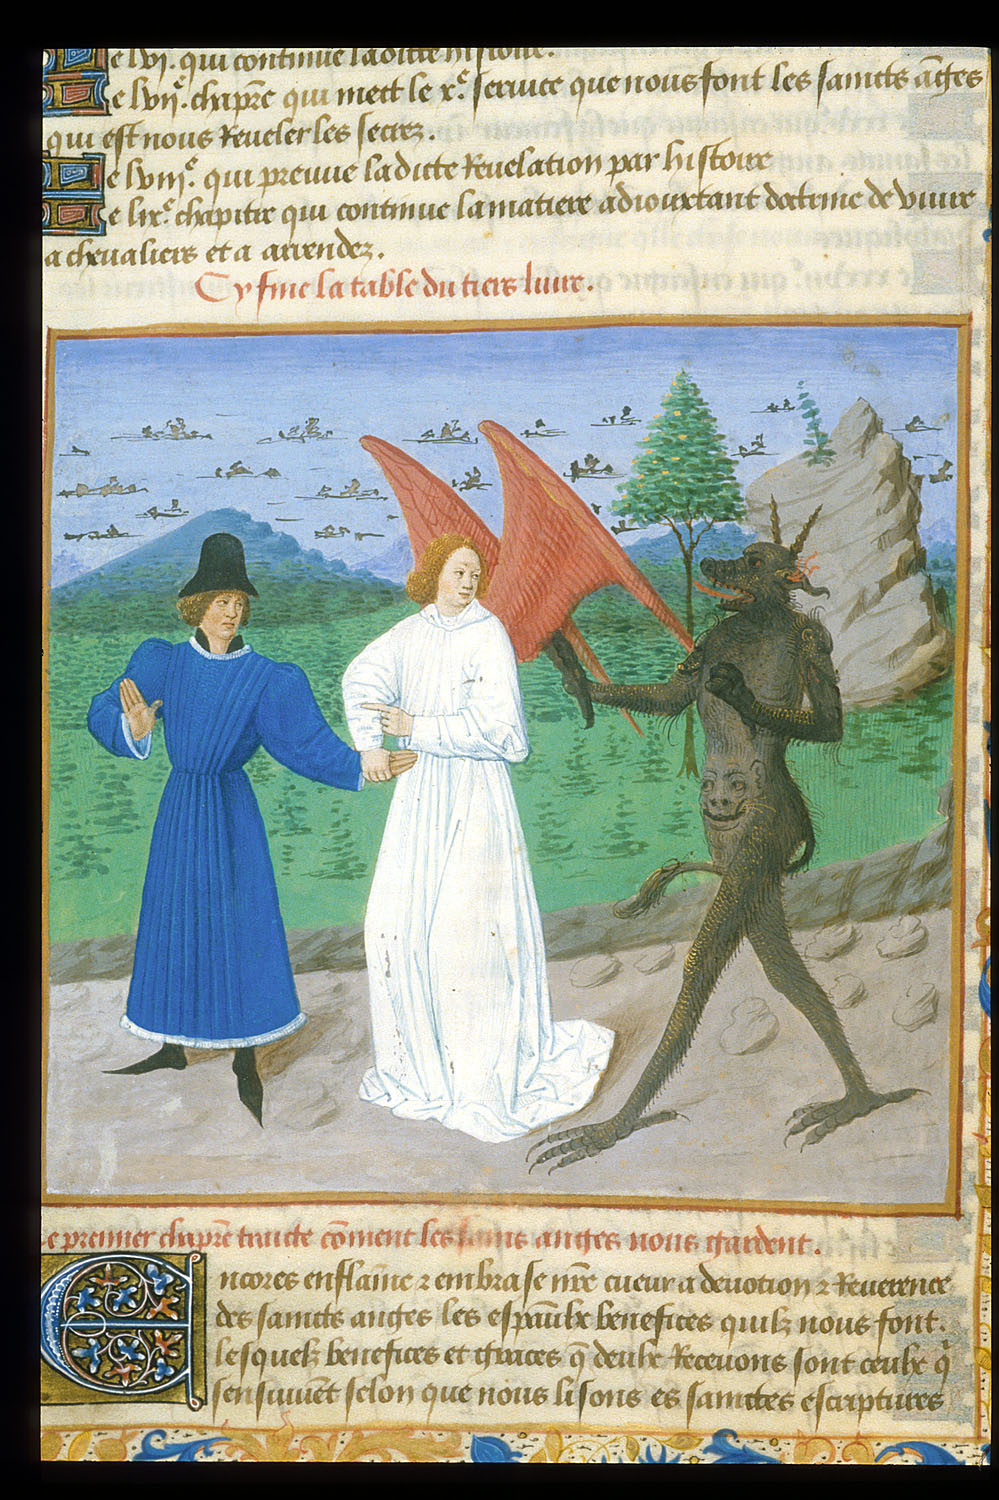 e lvi. qui continue ladicte histoire.
e lvii.e chapr̄e qui mect le x.e seruice que nous font les saincts āges
qui est nous Reueler les secrez.
e lviii.e qui preuue ladicte Reuelation par histoire
e lix.e chapitre qui continue la matiere adiouxtant doctrine de viure
a cheualiers et a
Cy fine la table du tiers liure.
e premier chapr̄e traicte cōment les sains anges nous gardent.
Encores enflāme ⁊ embrase nr̄e cueur a deuotion ⁊ Reuerence
des saincts anges les benefices quilz nous font.
lesquelz benefices et graces q̄ deulx Receuons sont ceulx q̄
sensuiuēt selon que nous lisons es sainctes escriptures